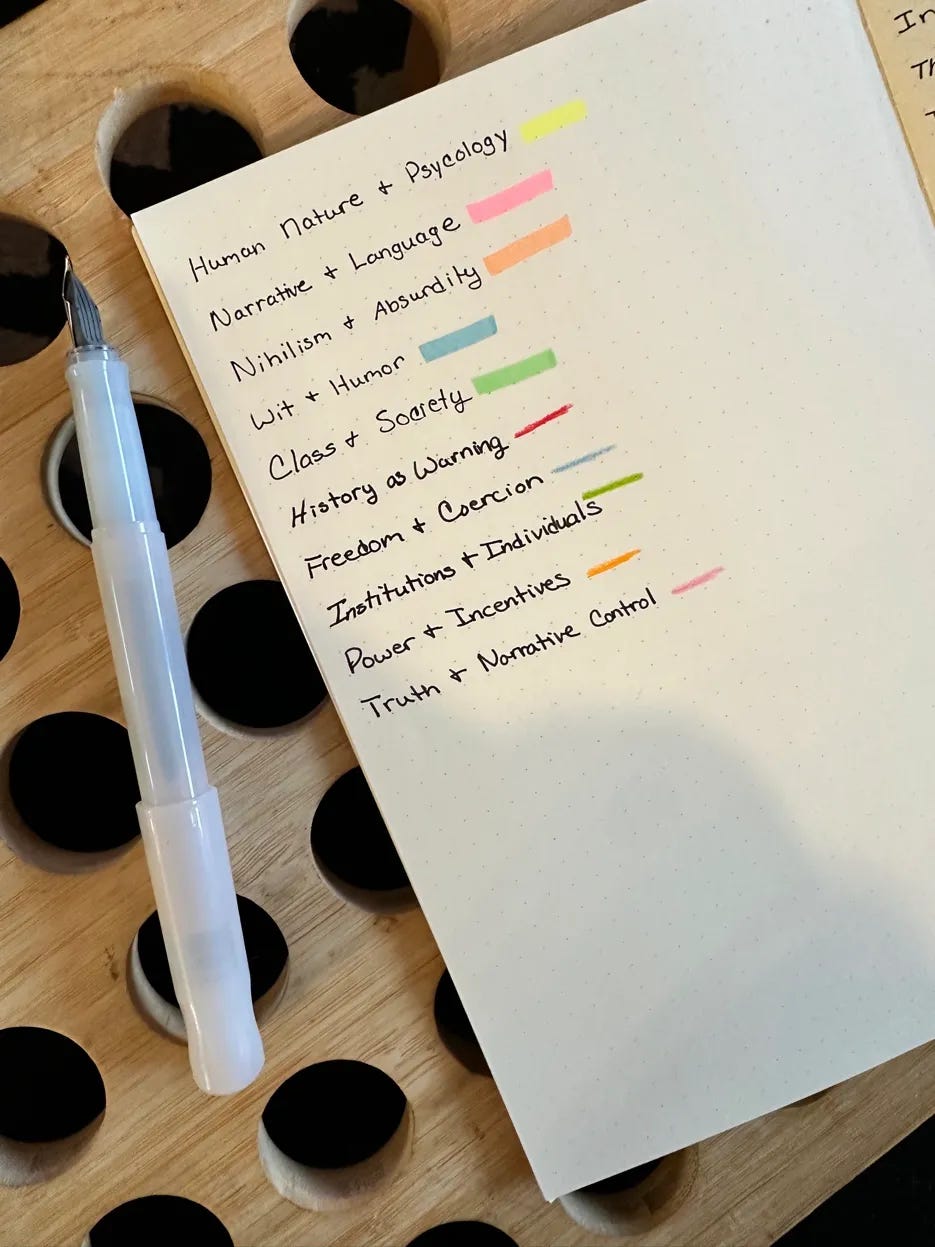 Human Nature + Psycology
Narrative + Language
Nihilism + Absurdity
Wit + Humor
Class + Society
History as Warning
Freedom + Coercion
Institutions + Individuals
Power + Incentives
Truth + Narrative Control